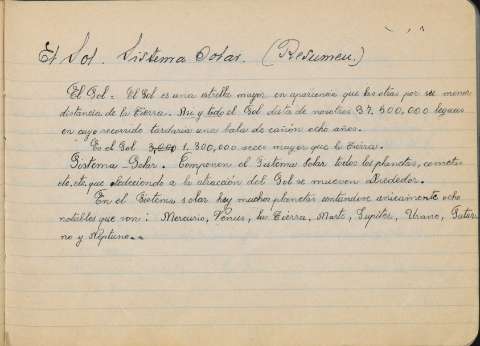 El Sol. Sistema Solar. (Resumen.)
El Sol = El Sol es una estrella mayor en apariencia que las otras por su menor
distancia de la Tierra. Asi y todo el Sol dista de nosotros 37.500,000 leguas
en cuyo recorrido tardaria una bala de cañón ocho años.
Es el Sol 1.300,000 veces mayor que la Tierra.
Sistema Solar. Componen el Sistema Solar todos los planetas, cometas
etc, etc, que obedeciendo a la atracción del Sol se mueven alrededor.
En el Sistema solar hay muchos planetas contandose unicamente ocho
notables que son: Mercurio, Venus, la Tierra, Marte, Jupiter, Urano, Satur
no y Neptuno.